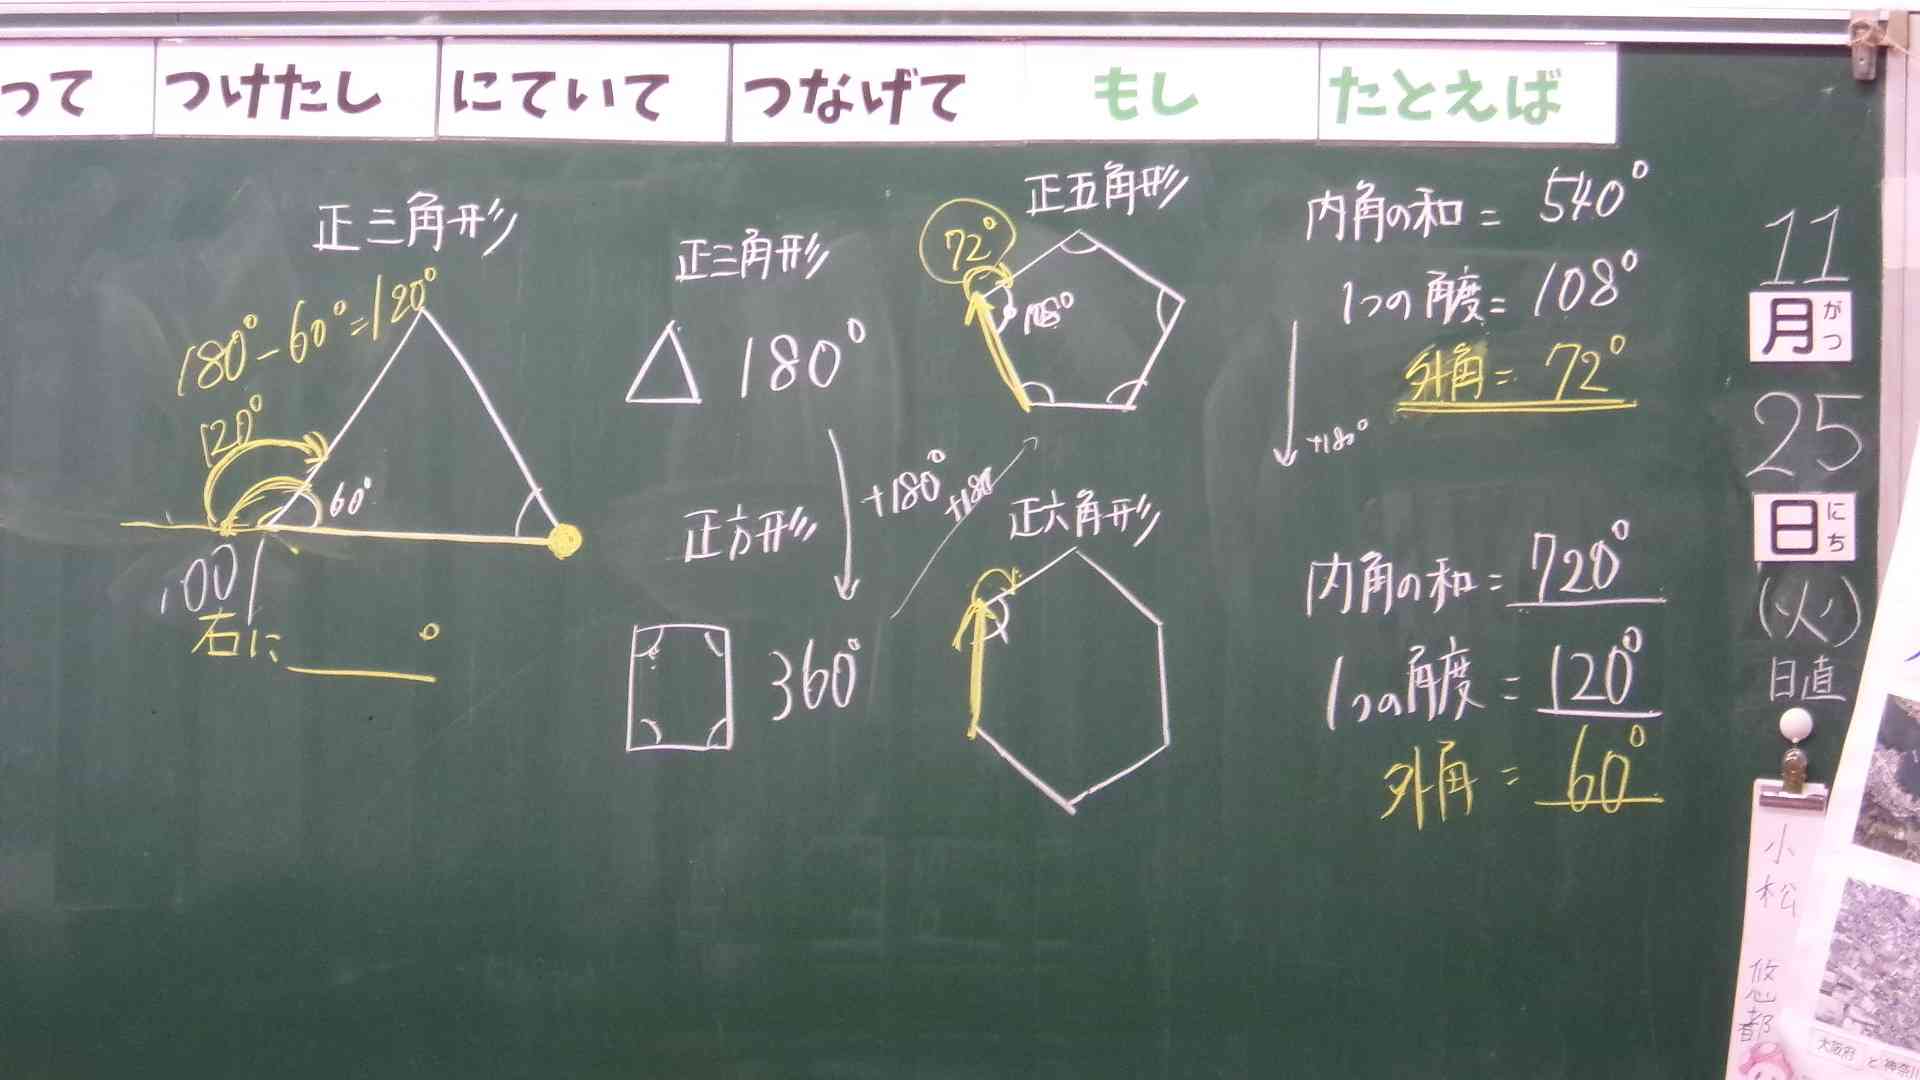 って
つけたし
にていて
つなげて
もし
たとえば
正三角形
180°-60°=120°
120°
60°
100
右に ____°
正三角形
180°
+180°
正方形
360°
+180
正五角形
72°
108°
内角の和 = 540°
1つの角度 = 108°
外角 = 72°
+180°
正六角形
内角の和 = 720°
1つの角度 = 120°
外角 = 60°
11
月 がつ
25
日 にち
(火)
日直
小松 悠都
大阪府 と 神奈川